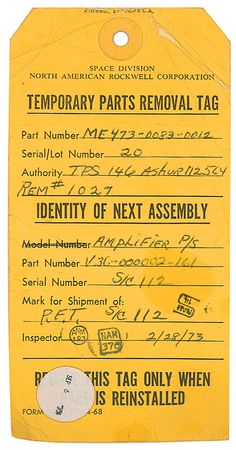 SPACE DIVISION
NORTH AMERICAN ROCKWELL CORPORATION
TEMPORARY PARTS REMOVAL TAG
Part Number ME473-0083-0012
Serial/Lot Number 20
Authority TPS 146
REM# 1027
IDENTITY OF NEXT ASSEMBLY
Model Number AMPLIFIER P/S
Part Number V36-000002-161
Serial Number S/C 112
Mark for Shipment of:
P.E.T. S/C 112
NAM
376
Inspector 2/28/73
THIS TAG ONLY WHEN
IS REINSTALLED
FORM